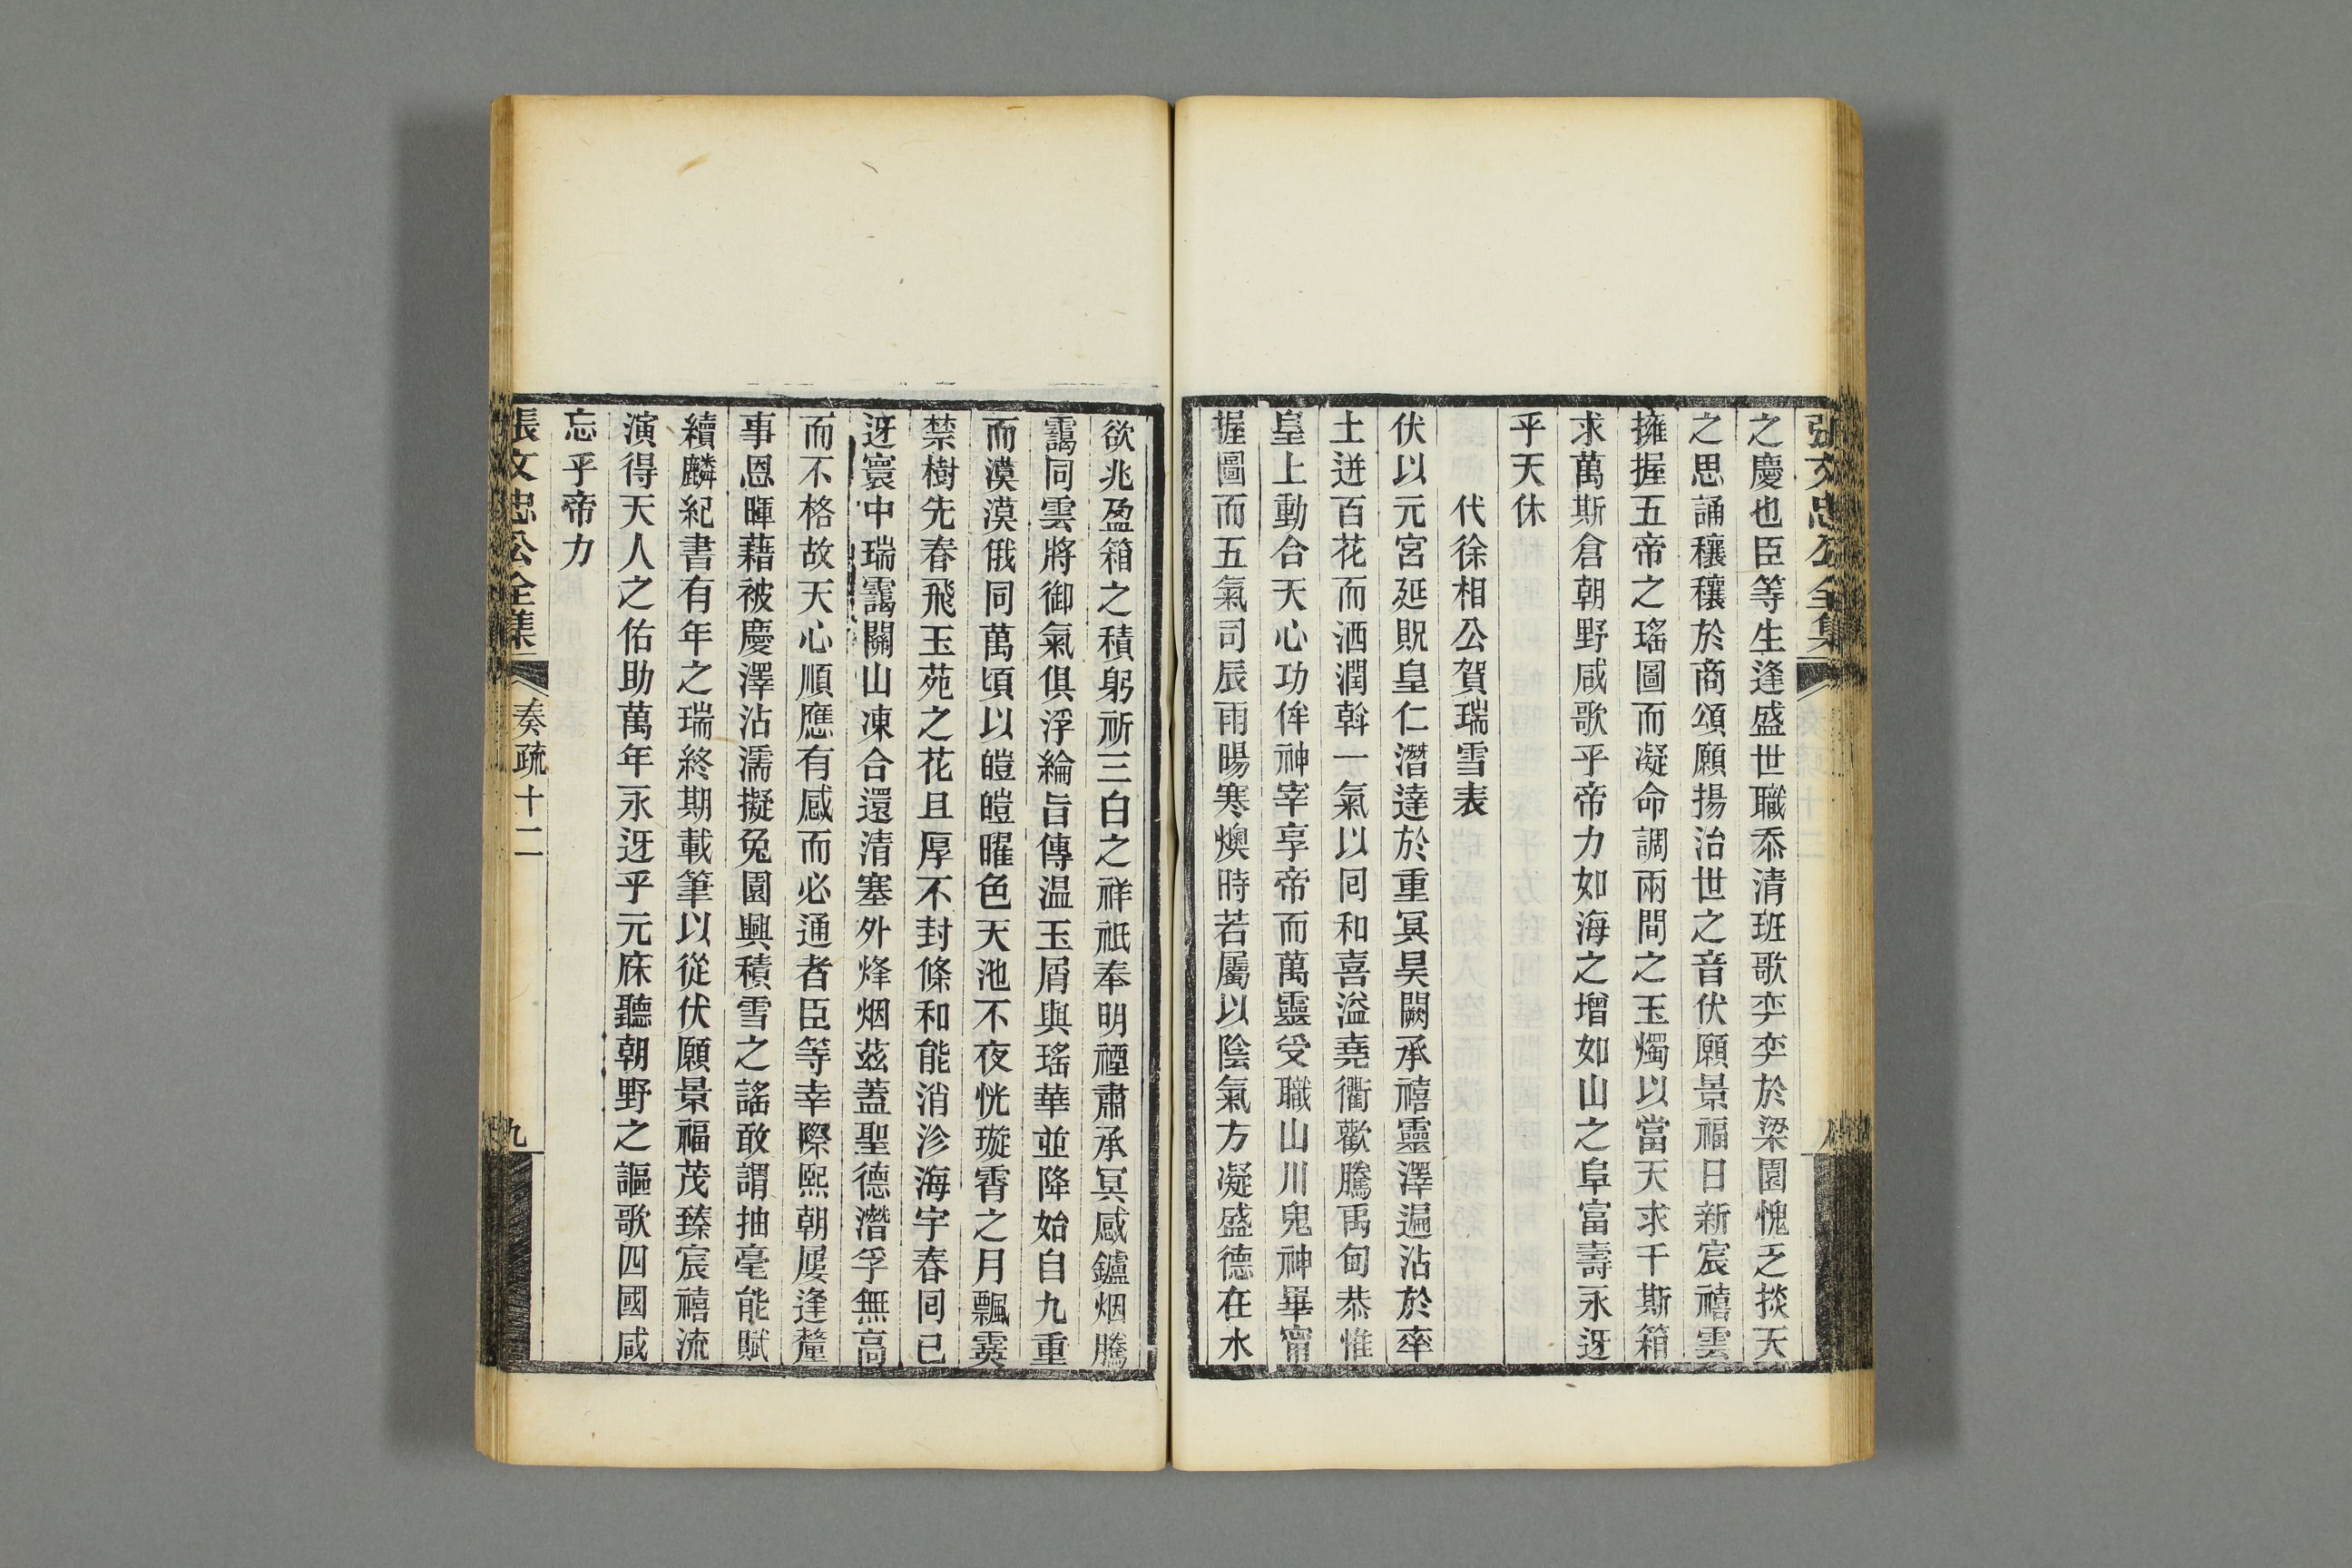 張文忠公全集
之慶也臣等生逢盛世職忝清班歌奕奕於梁園愧乏掞天
之思誦穰穰於商頌願揚治世之音伏願景福日新宸禧雲
擁握五帝之瑤圖而凝命調兩間之玉燭以當天求千斯箱
求萬斯倉朝野咸歌乎帝力如海之增如山之阜富壽永迓
乎天休
代徐相公賀瑞雪表
伏以元宮延貺皇仁潛達於重冥昊闕承禧靈澤遍沾於率
土迸百花而洒潤斡一氣以囘和喜溢堯衢歡騰禹甸恭惟
皇上動合天心功侔神宰享帝而萬靈受職山川鬼神畢甯
握圖而五氣司辰雨暘寒燠時若屬以陰氣方凝盛德在水
欲兆盈箱之積躬祈三白之祥祇奉明禋肅承冥感鑪烟騰
靄同雲將御氣俱浮綸旨傳温玉屑與瑤華並降始自九重
而漠漠俄同萬頃以皚皚曜色天池不夜恍璇霄之月飄霙
禁樹先春飛玉苑之花且厚不封條和能消沴海宇春囘已
迓寰中瑞靄關山凍合還清塞外烽烟茲蓋聖德潛孚無高
而不格故天心順應有感而必通者臣等幸際熙朝屢逢釐
事恩暉藉被慶澤沾濡擬兔園興積雪之謠敢謂抽毫能賦
續麟紀書有年之瑞終期載筆以從伏願景福茂臻宸禧流
演得天人之佑助萬年永迓乎元庥聽朝野之謳歌四國咸
忘乎帝力
張文忠公全集 奏疏十二 九